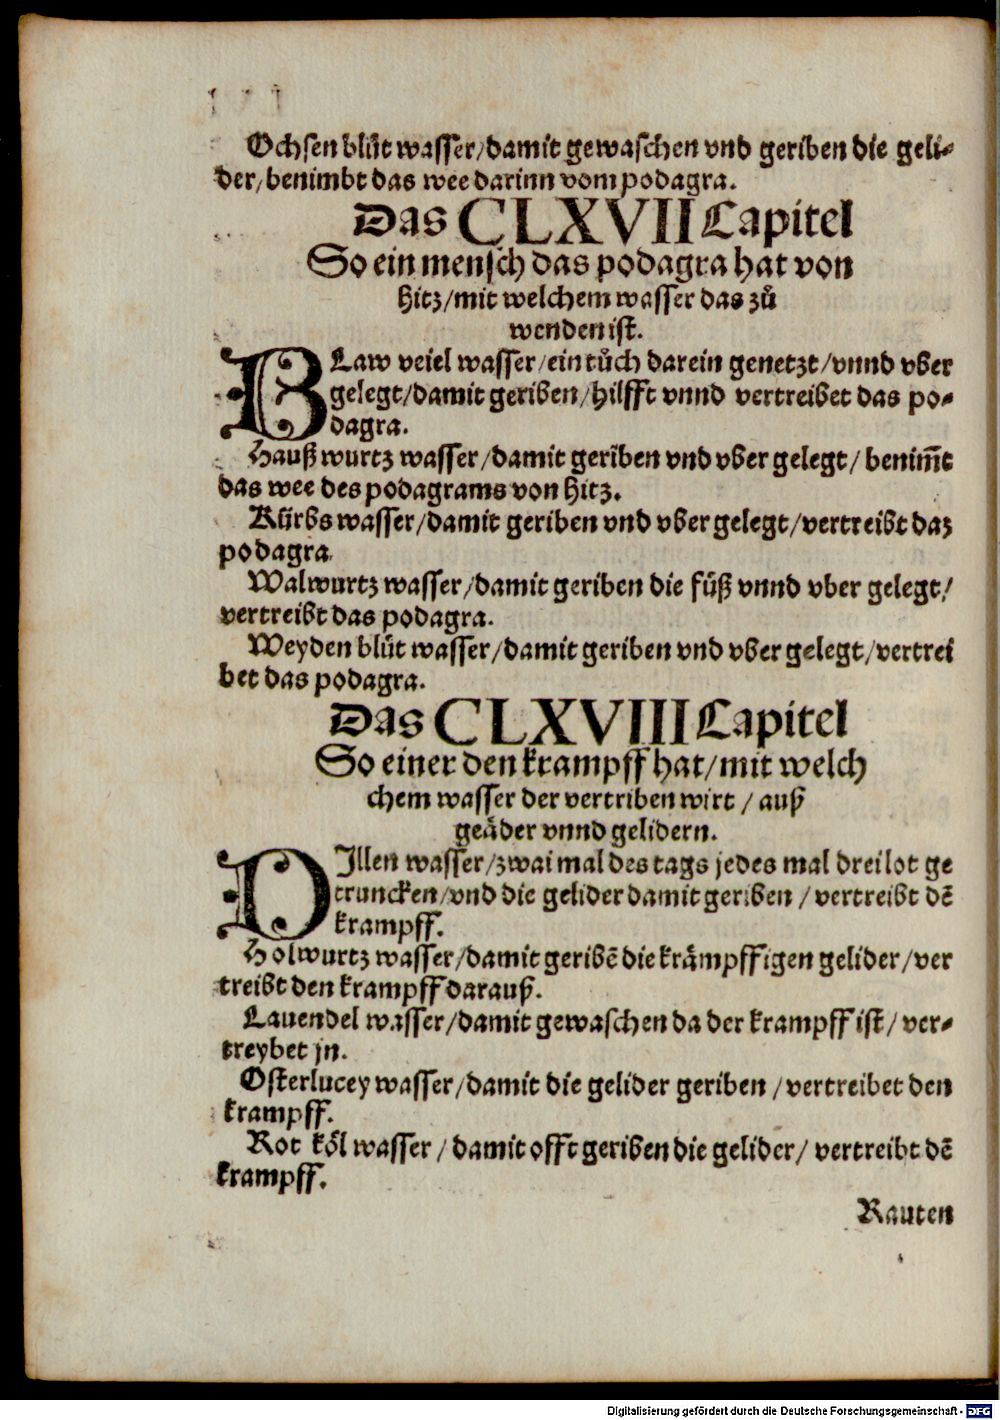 Ochsen blůt wasser/damit gewaschen vnd geriben die geli-
der/benimbt das wee darinn vom podagra.
Das CLXVII Capitel
So ein mensch das podagra hat von
hitz/mit welchem wasser das zů
wenden ist.
BLaw veiel wasser/ein tůch darein genetzt/vnnd vber
gelegt/damit geriben/hilfft vnnd vertreibet das po-
dagra.
Hauß wurtz wasser/damit geriben vnd vber gelegt/ benim̄t
das wee des podagrams von hitz.
Kürbs wasser/damit geriben vnd vber gelegt/vertreibt daz
podagra.
Walwurtz wasser/damit geriben die füß vnnd vber gelegt/
vertreibt das podagra.
Weyden blůt wasser/damit geriben vnd vber gelegt/vertrei
bet das podagra.
Das CLXVIII Capitel
So einer den krampff hat/mit welch
chem wasser der vertriben wirt / auß
geäder vnnd gelidern.
DIllen wasser/zwai mal des tags jedes mal drei lot ge
truncken/vnd die gelider damit geriben / vertreibt dē
krampff.
Holwurtz wasser/damit geribē die krämpffigen gelider/ver
treibt den krampff darauß.
Lauendel wasser/damit gewaschen da der krampff ist/ ver-
treybet jn.
Osterlucey wasser/damit die gelider geriben /vertreibet den
krampff.
Rot köl wasser / damit offt geriben die gelider/ vertreibt dē
krampff.
Rauten
Digitalisierung gefördert durch die Deutsche Forschungsgemeinschaft - DFG